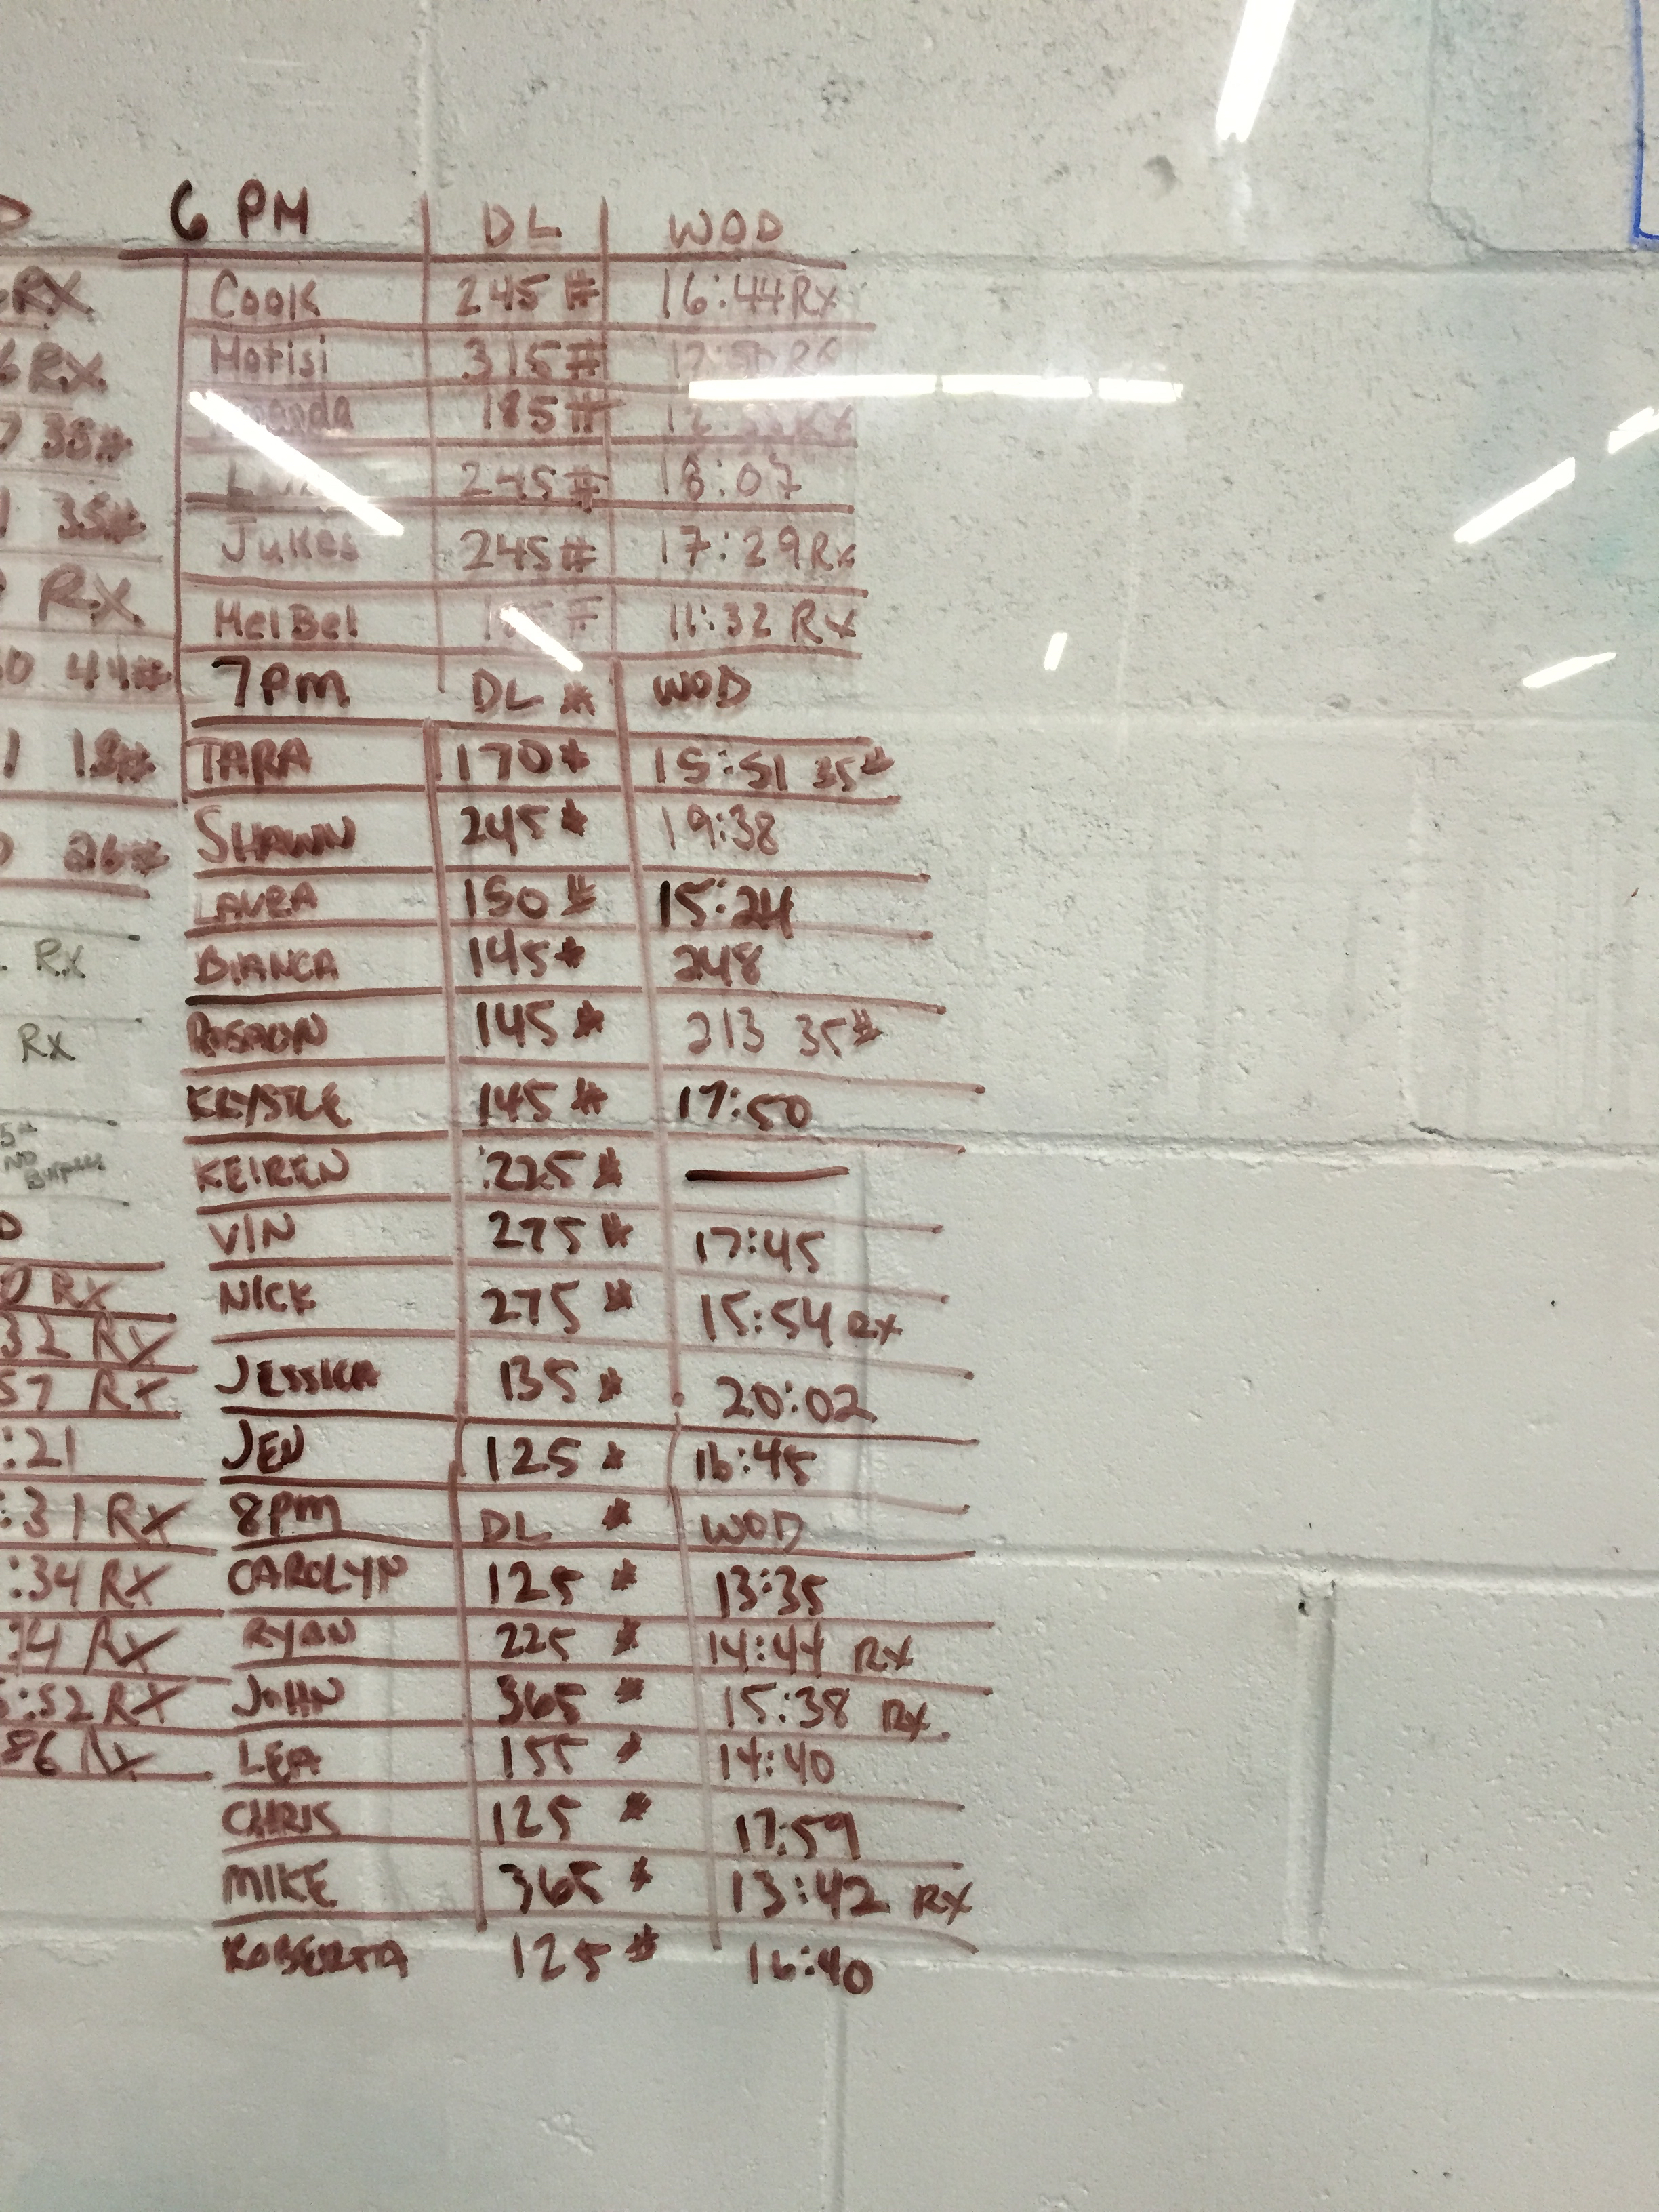 6 PM DL WOD
RX Cook 245# 16:44 Rx
6 RX Motisi 315#
7 35# 185#
1 35# 245# 18:07
RX Jukes 245# 17:29 Rx
0 44# MelBel 11:32 Rx
7PM DL # WOD
1 18# TARA 170# 15:51 35#
0 26# SHAWN 245# 19:38
LAURA 150# 15:24
Rx BIANCA 145# 248
Rx 145# 213 35#
KRYSTLE 145# 17:50
NO KEIREN 225# —
VIN 275# 17:45
0 Rx NICK 275# 15:54 Rx
32 Rx
57 Rx JESSICA 135# 20:02
:21 JEN 125# 16:45
:31 Rx 8PM DL # WOD
:34 Rx CAROLYN 125# 13:35
:14 Rx RYAN 225# 14:44 Rx
:52 Rx JOHN 365# 15:38 Rx
86 Rx LEA 155# 14:40
CHRIS 125# 17:59
MIKE 365# 13:42 Rx
ROBERTA 125# 16:40